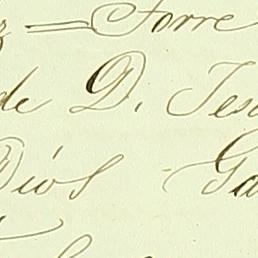 z = Torre
de D. Jesu
Dios - Ga